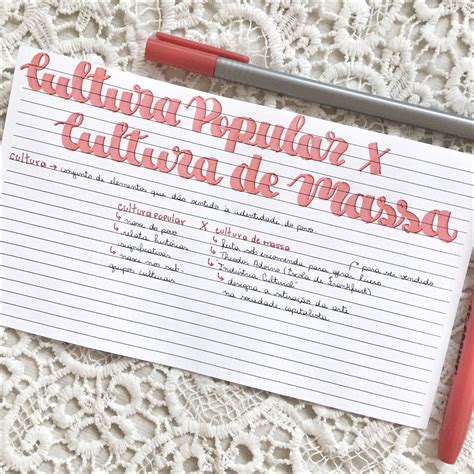 Cultura Popular X
Cultura de massa
cultura → conjunto de elementos que dão sentido à identidade do povo.
cultura popular X cultura de massa
↳ nasce do povo ↳ feita sob encomenda para gerar lucro ↱ para ser vendido
↳ relata histórias ↳ Theodor Adorno (Escola de Frankfurt)
significativas ↳ "Indústria Cultural"
↳ nasce nos sub- ↳ designa a situação da arte
grupos culturais na sociedade capitalista